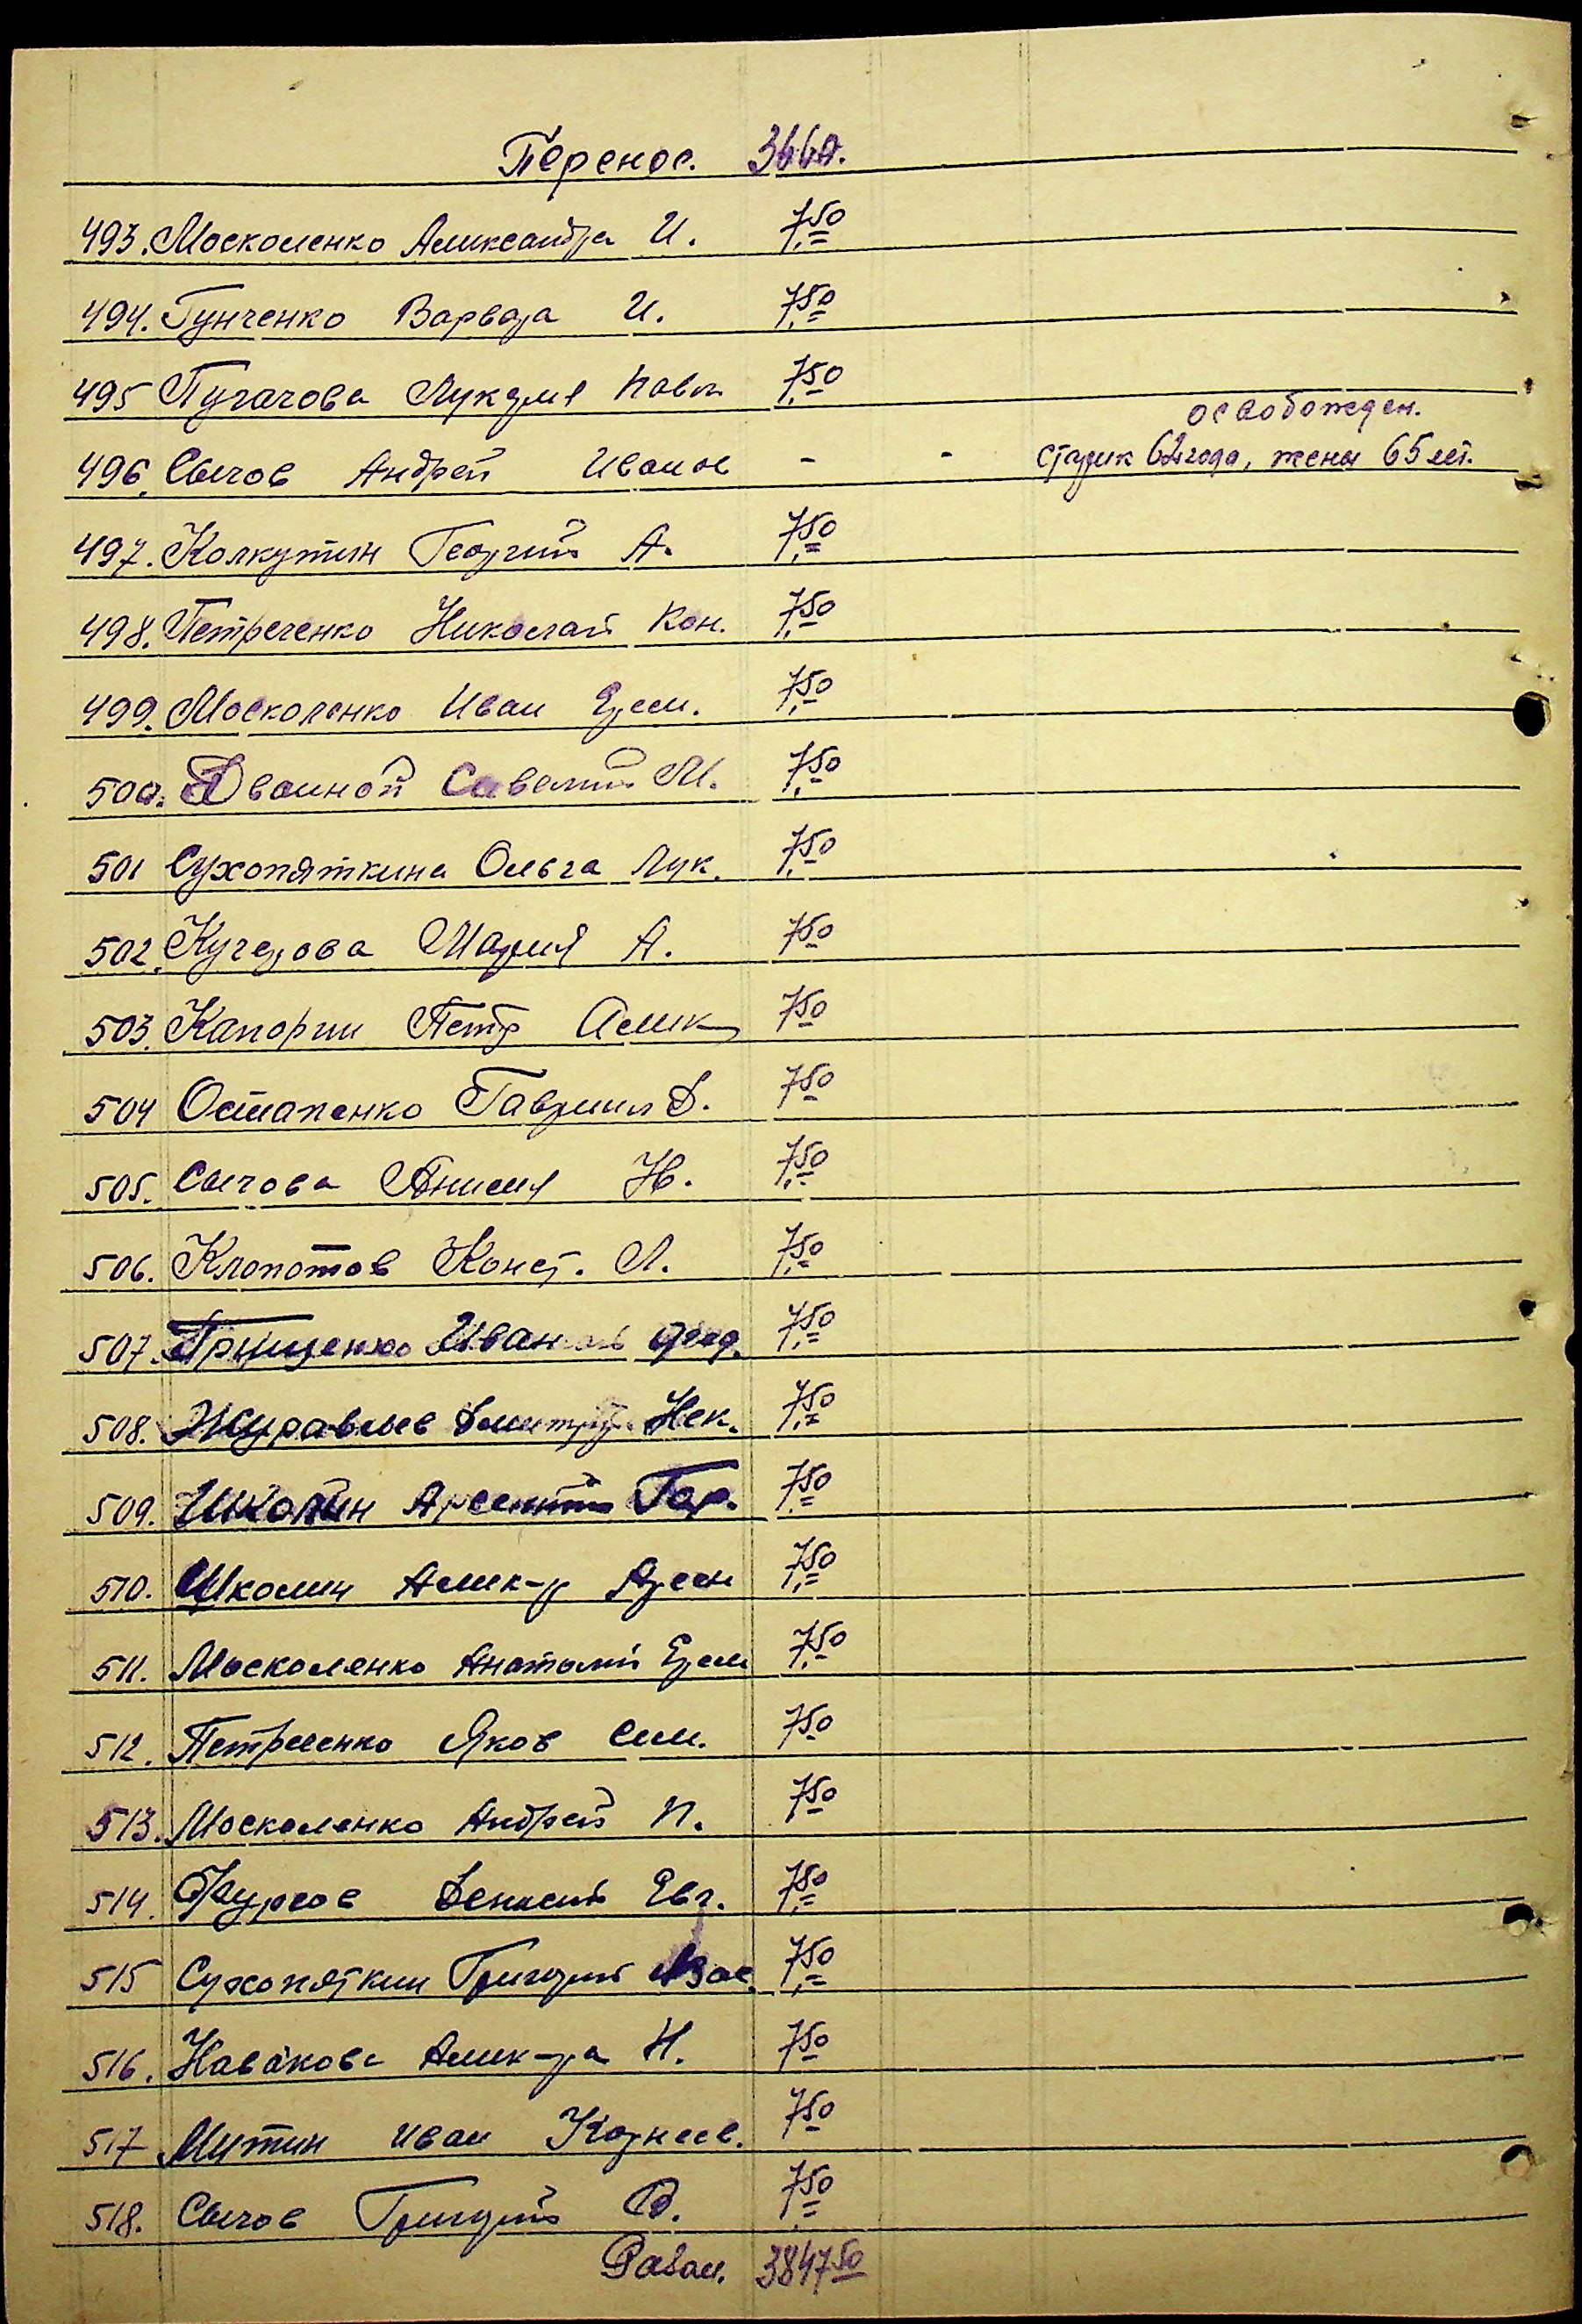 Перенос. 3660.
493. Москоленко Александра И. 7,50
494. Гунченко Варвара И. 7,50
495 Пугачова Лукерия Павл 7,50
освобожден.
496. Сычов Андрей Иванов - - старик 62 года, жены 65 лет.
497. Колкутин Георгий А. 7,50
498. Петреченко Николай Кон. 7,50
499. Москоленко Иван Ерем. 7,50
500. Двойной Савелий М. 7,50
501 Сухопяткина Ольга Лук. 7,50
502. Кучерова Мария А. 7,50
503. Капорин Петр Алек 7,50
504 Остапенко Гавриил Д. 7,50
505. Сычова Анисия Н. 7,50
506. Клопотов Конст. Л. 7,50
507. Грищенко Иван 7,50
508. Журавлев Дмитрий Нек. 7,50
509. Школин Арсентий Гар. 7,50
510. Школин Алек-р Арсен 7,50
511. Москоленко Анатолий Ерем 7,50
512. Петреченко Яков Сем. 7,50
513. Москоленко Андрей П. 7,50
514. Фурсов Евг. 7,50
515 Сухопяткин Григорий Вас. 7,50
516. Новакова Алек-ра Н. 7,50
517 Митин Иван Корнеев. 7,50
518. Сычов Григорий Ф. 7,50
3847,50